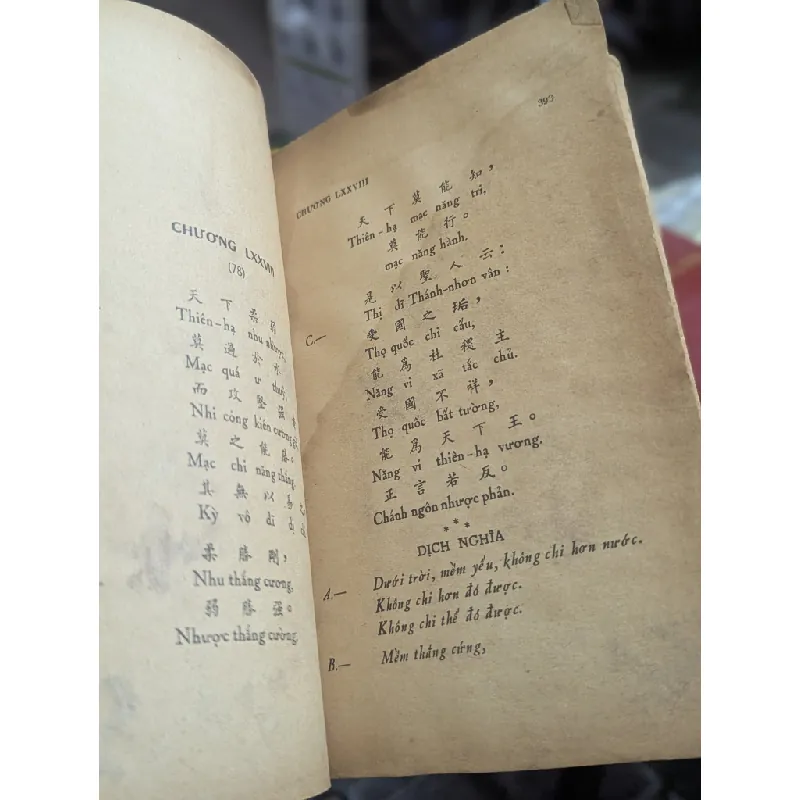 CHƯƠNG LXXVIII
(78)
天 下 柔 弱
Thiên-hạ nhu nhược,
莫 過 於 水
Mạc quá ư thuỷ,
而 攻 堅 强
Nhi công kiên cường
莫 之 能 勝。
Mạc chi năng thắng.
其 無 以 易 之
Kỳ vô dĩ dị
柔 勝 剛,
Nhu thắng cương,
弱 勝 强。
Nhược thắng cường.
CHƯƠNG LXXVIII
天 下 莫 能 知,
Thiên-hạ mạc năng tri,
莫 能 行。
mạc năng hành.
C.— 是 以 聖 人 云:
Thị dĩ Thánh-nhơn vân:
受 國 之 垢,
Thọ quốc chi cấu,
能 爲 社 稷 主
Năng vi xã tắc chủ.
受 國 不 祥,
Thọ quốc bất tường,
能 爲 天 下 王。
Năng vi thiên-hạ vương.
正 言 若 反。
Chánh ngôn nhược phản.
***
DỊCH NGHĨA
A.— Dưới trời, mềm yếu, không chi hơn nước.
Không chi hơn đó được.
Không chi thế đó được.
B.— Mềm thắng cứng,